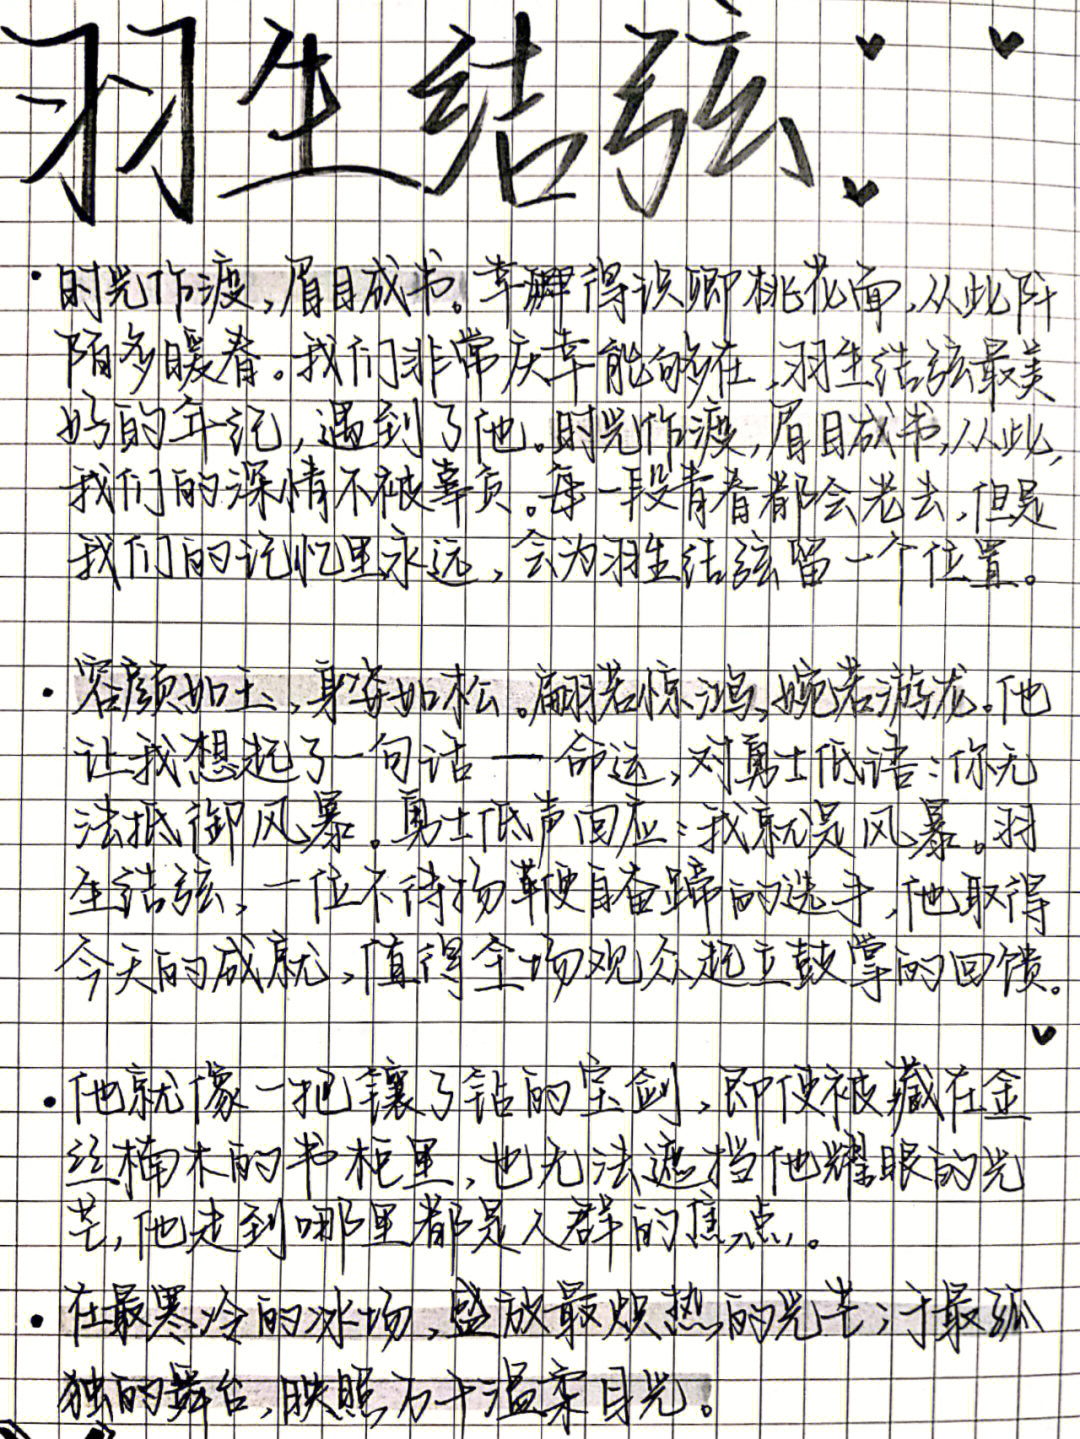 羽生结弦
·时光作渡,眉目成书。幸得识卿桃花面,从此阡
陌多暖春。我们非常庆幸能够在,羽生结弦最美
好的年纪,遇到了他。时光作渡,眉目成书,从此,
我们的深情不被辜负。每一段青春都会老去,但是
我们的记忆里永远,会为羽生结弦留一个位置。
·容颜如玉,身姿如松。翩若惊鸿,婉若游龙。他
让我想起了一句话——命运,对勇士低语:你无
法抵御风暴。勇士低声回应:我就是风暴。羽
生结弦,一位不待扬鞭自奋蹄的选手,他取得
今天的成就,值得全场观众起立鼓掌的回馈。
·他就像一把镶了钻的宝剑,即使被藏在金
丝楠木的书柜里,也无法遮挡他耀眼的光
芒,他走到哪里都是人群的焦点。
·在最寒冷的冰场,盛放最炽热的光芒;于最孤
独的舞台,映照万千温柔目光。